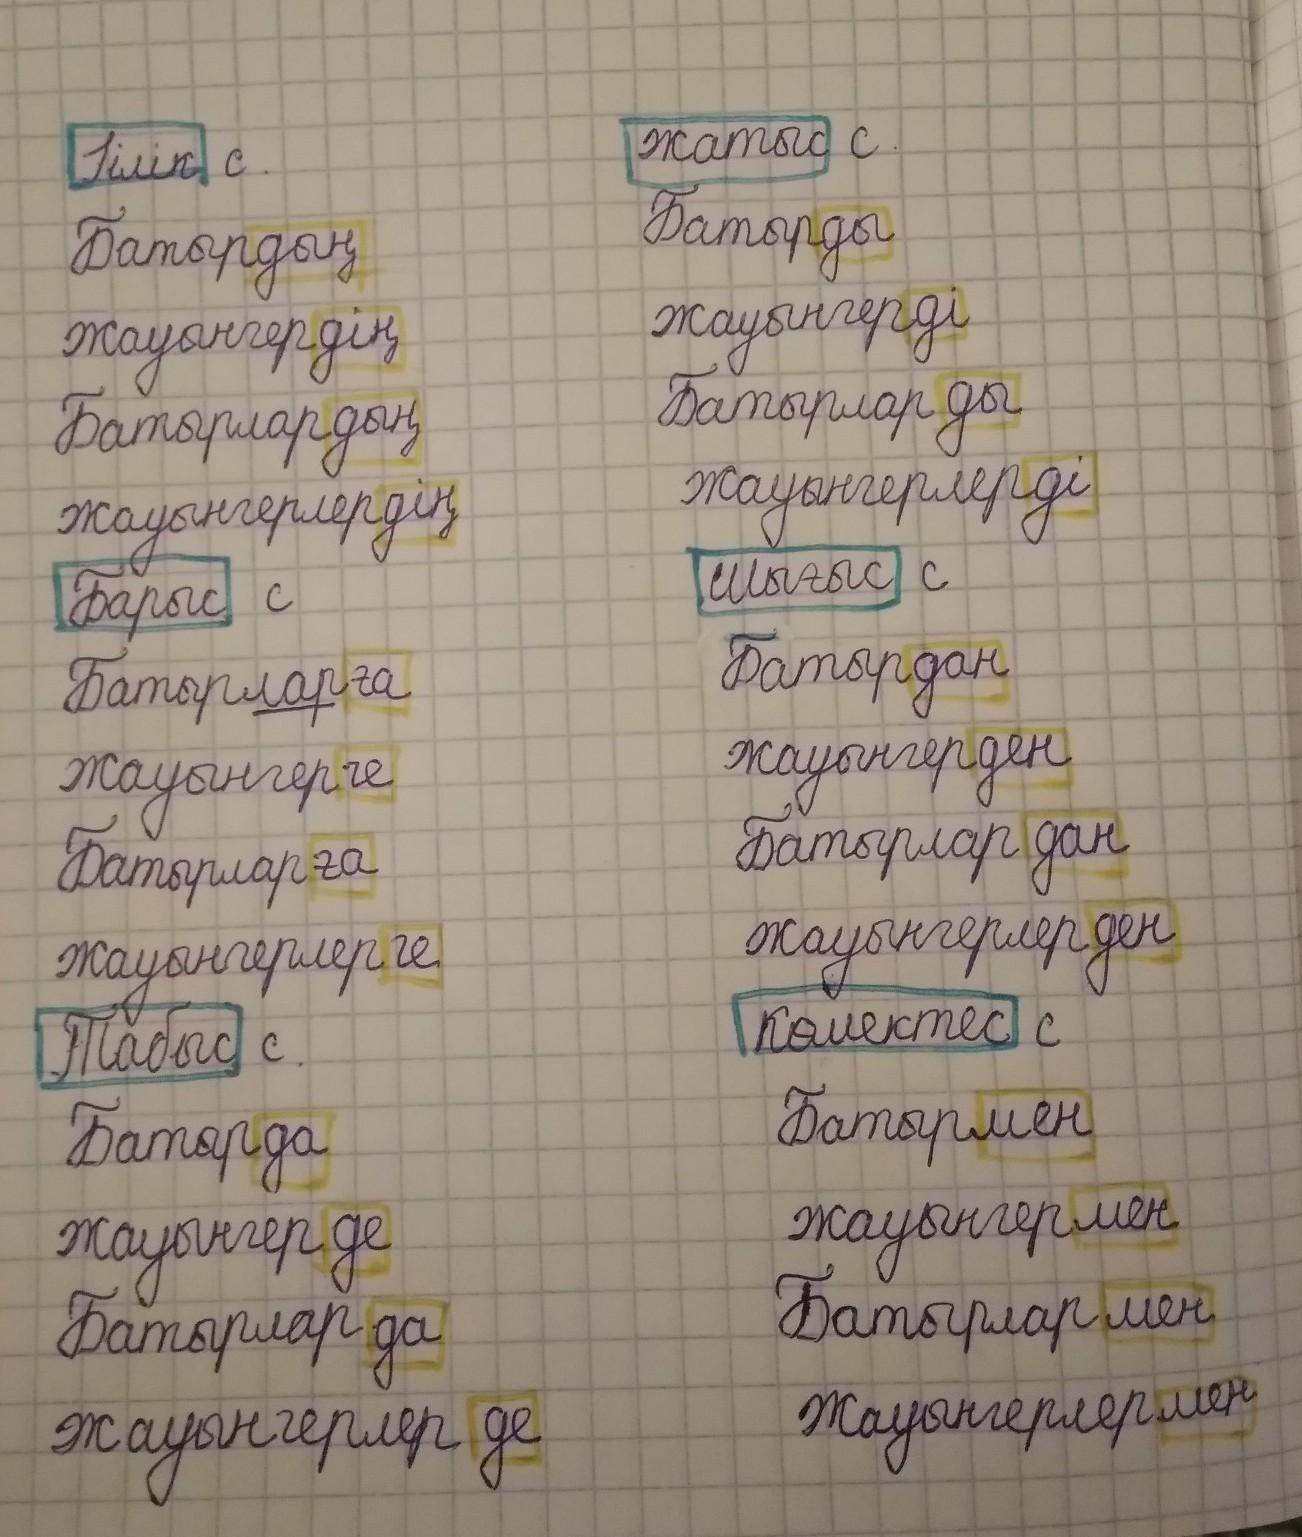 Ілік с.
Батырдың
жауынгердің
Батырлардың
жауынгерлердің
Барыс с
Батырларға
жауынгерге
Батырларға
жауынгерлерге
Табыс с.
Батырда
жауынгерде
Батырларда
жауынгерлер де
Жатыс с.
Батырды
жауынгерді
Батырлар ды
жауынгерлерді
Шығыс с
Батырдан
жауынгерден
Батырлар дан
жауынгерлерден
Көмектес с
Батырмен
жауынгермен
Батырлармен
жауынгерлермен